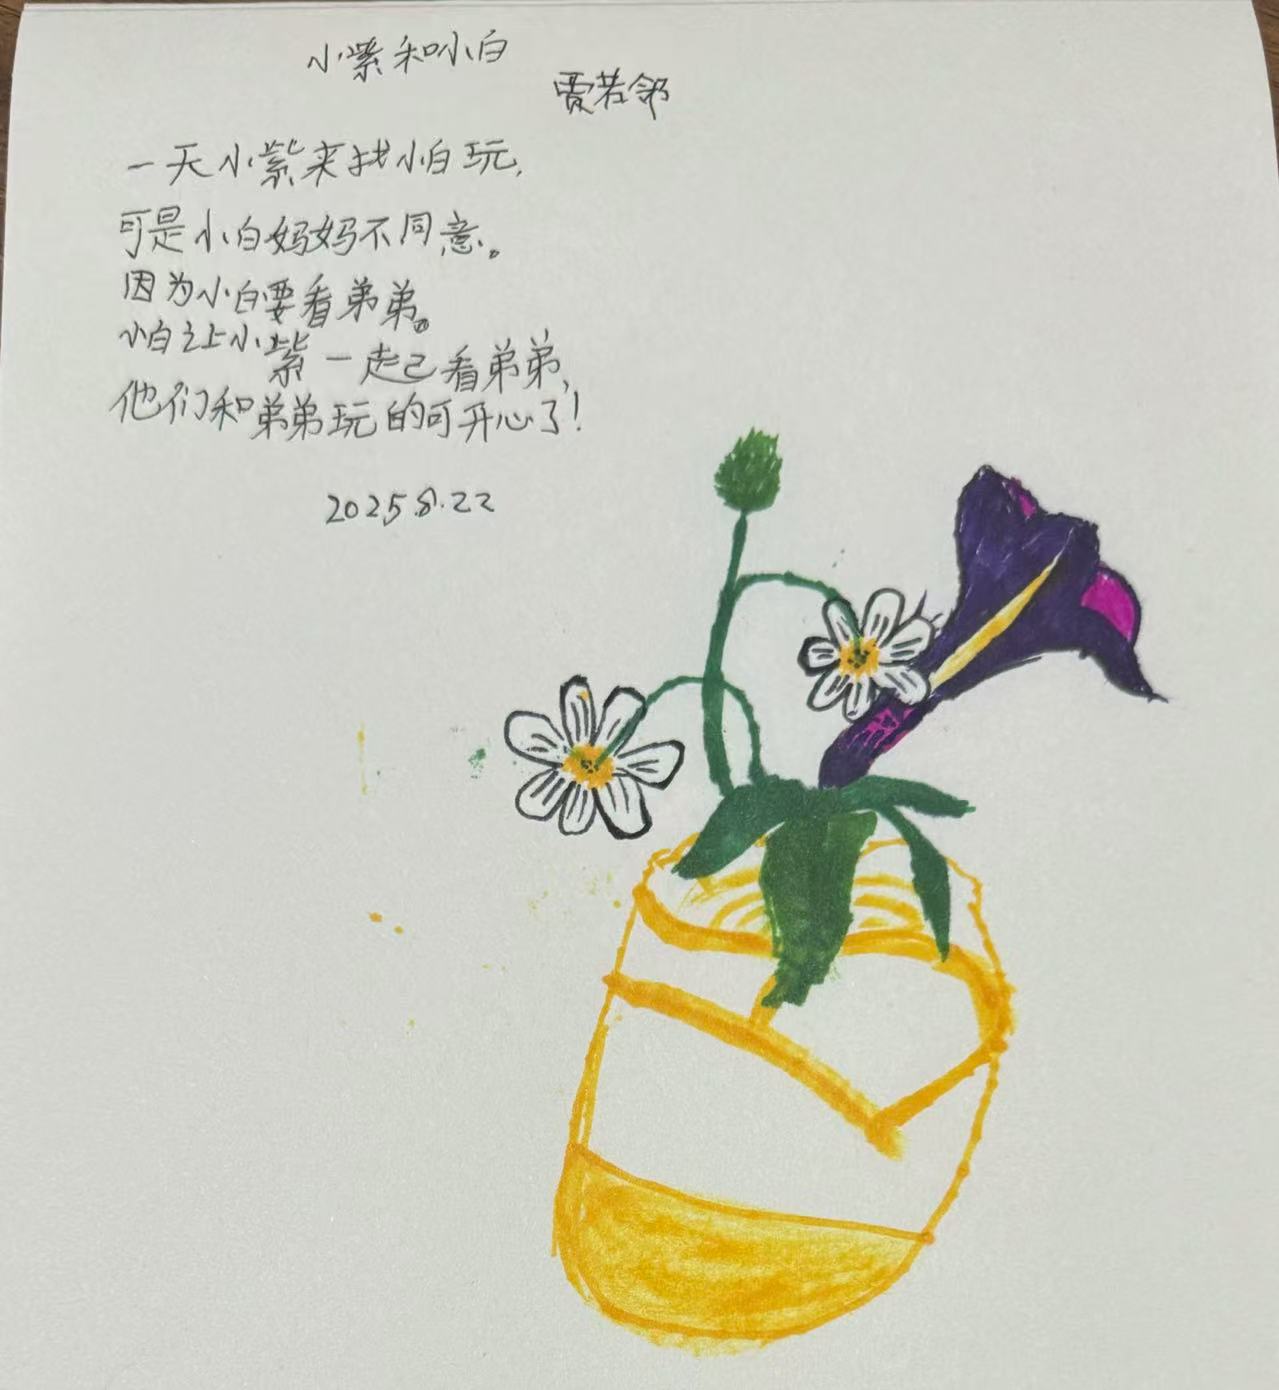 小紫和小白
贾若邻
一天小紫来找小白玩,
可是小白妈妈不同意。
因为小白要看弟弟。
小白让小紫一走己看弟弟,
他们和弟弟玩的可开心了!
2025.8.22